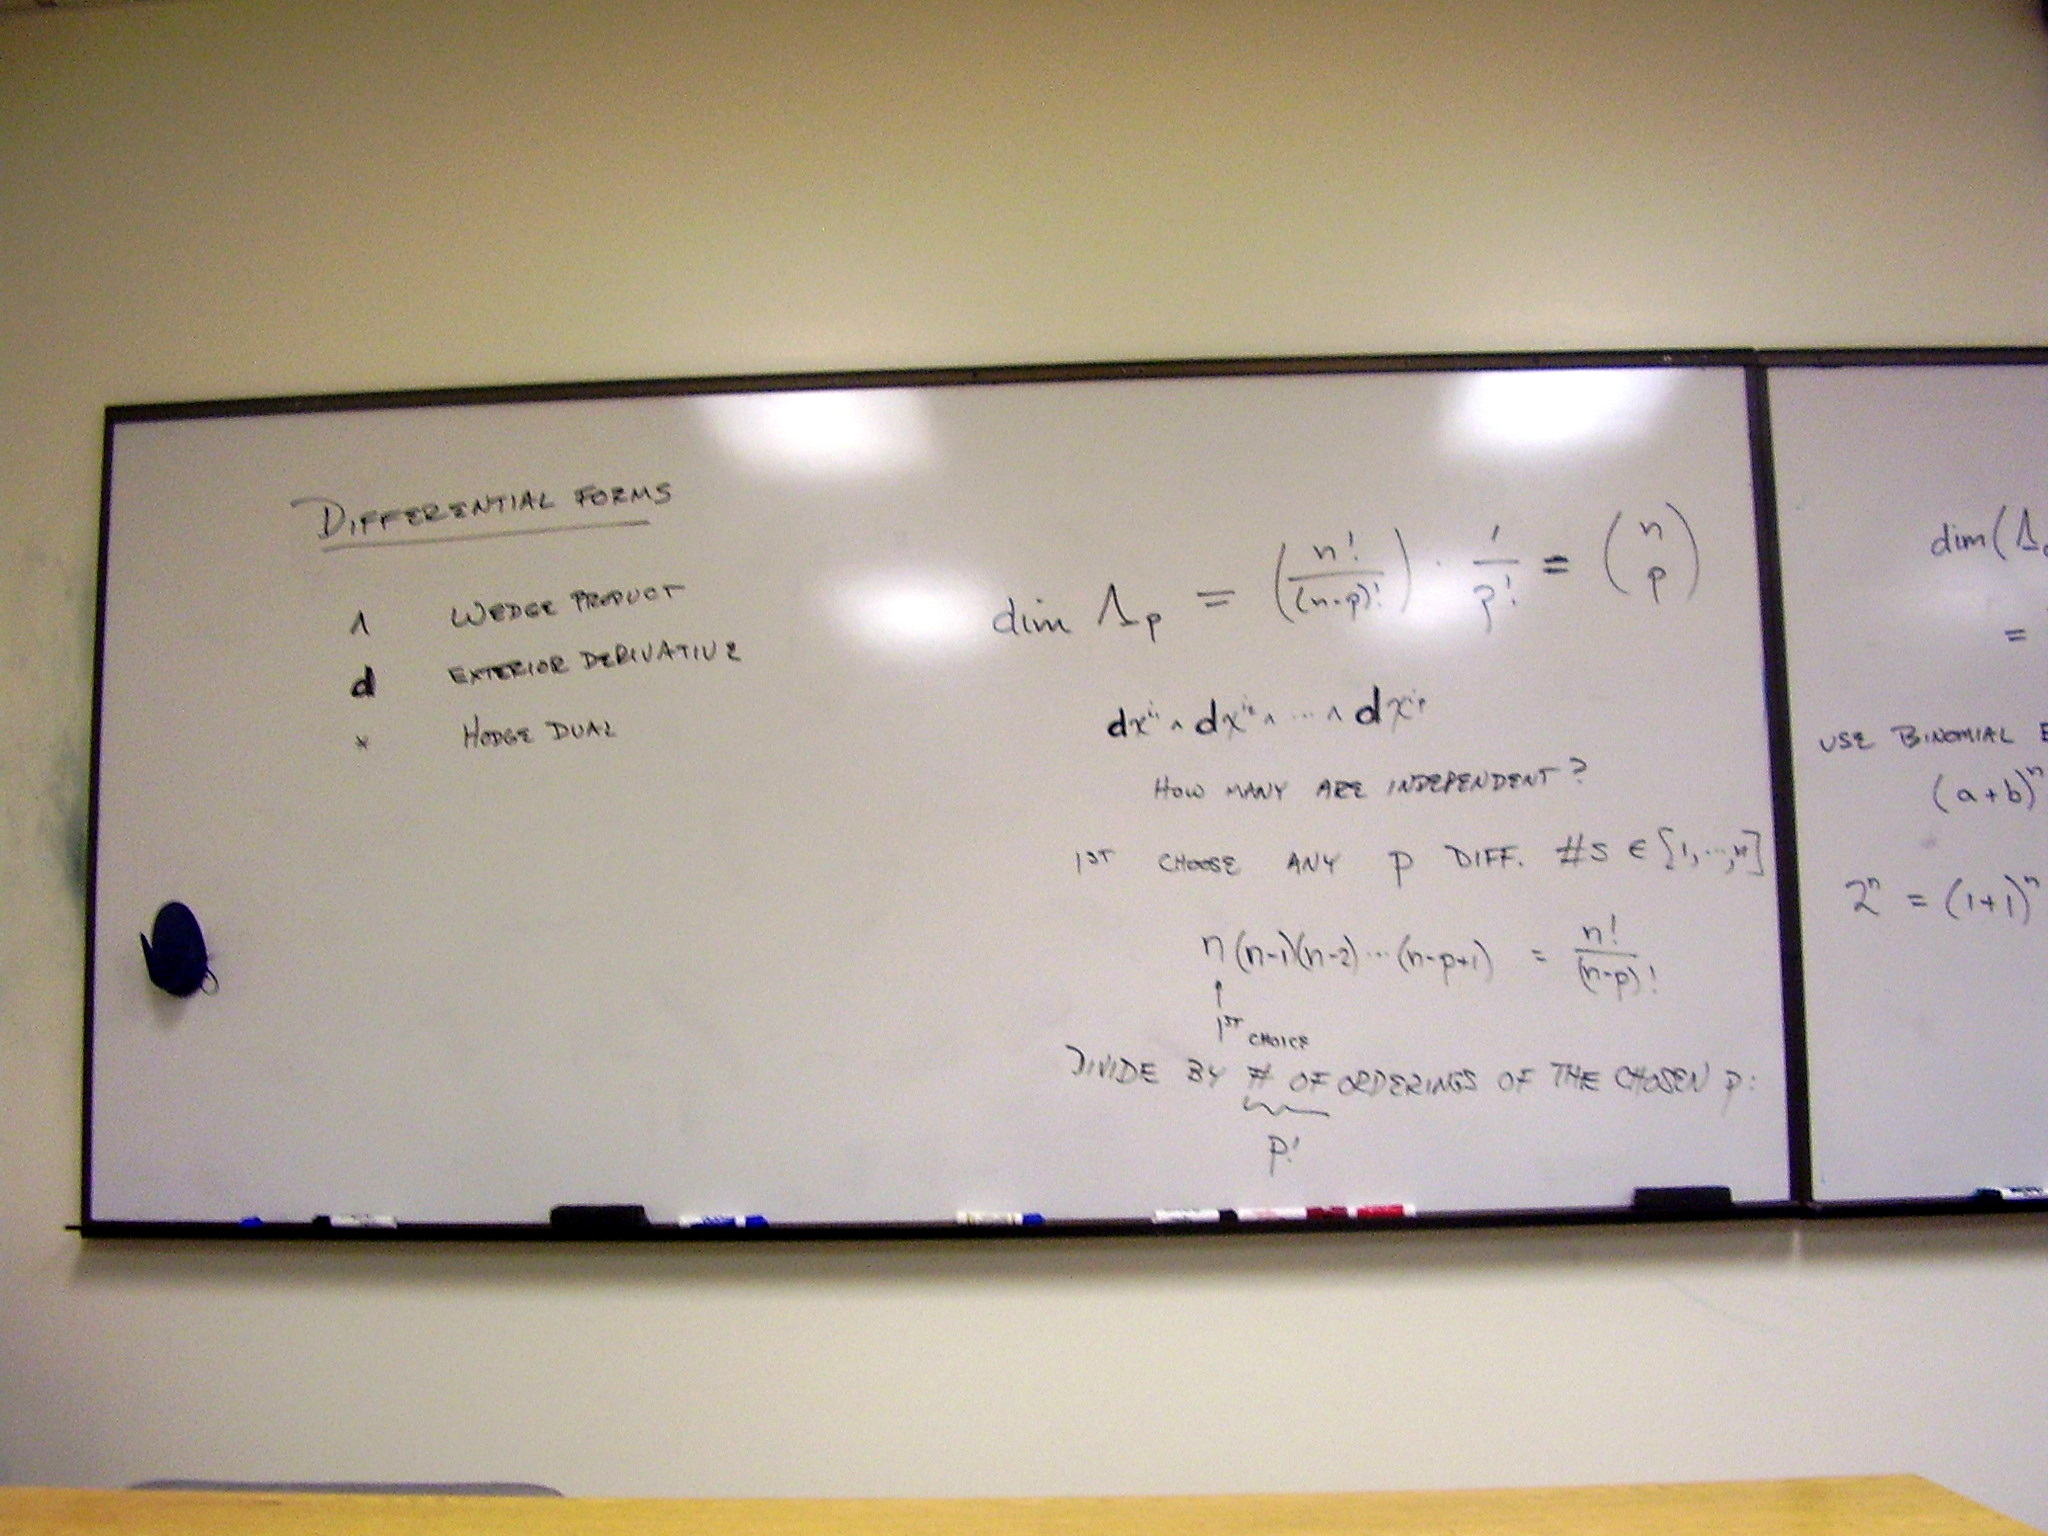 DIFFERENTIAL FORMS
∧ WEDGE PRODUCT
d EXTERIOR DERIVATIVE
* HODGE DUAL
dim Λₚ = (n!/(n-p)!) · 1/p! = (n p)
dx^i₁ ∧ dx^i₂ ∧ ... ∧ dx^iₚ
HOW MANY ARE INDEPENDENT?
1ST CHOOSE ANY P DIFF. #S ∈ [1,...,n]
n(n-1)(n-2)...(n-p+1) = n!/(n-p)!
↑
1ST CHOICE
DIVIDE BY # OF ORDERINGS OF THE CHOSEN P:
p!
dim(Λ
=
USE BINOMIAL E
(a+b)ⁿ
2ⁿ = (1+1)ⁿ